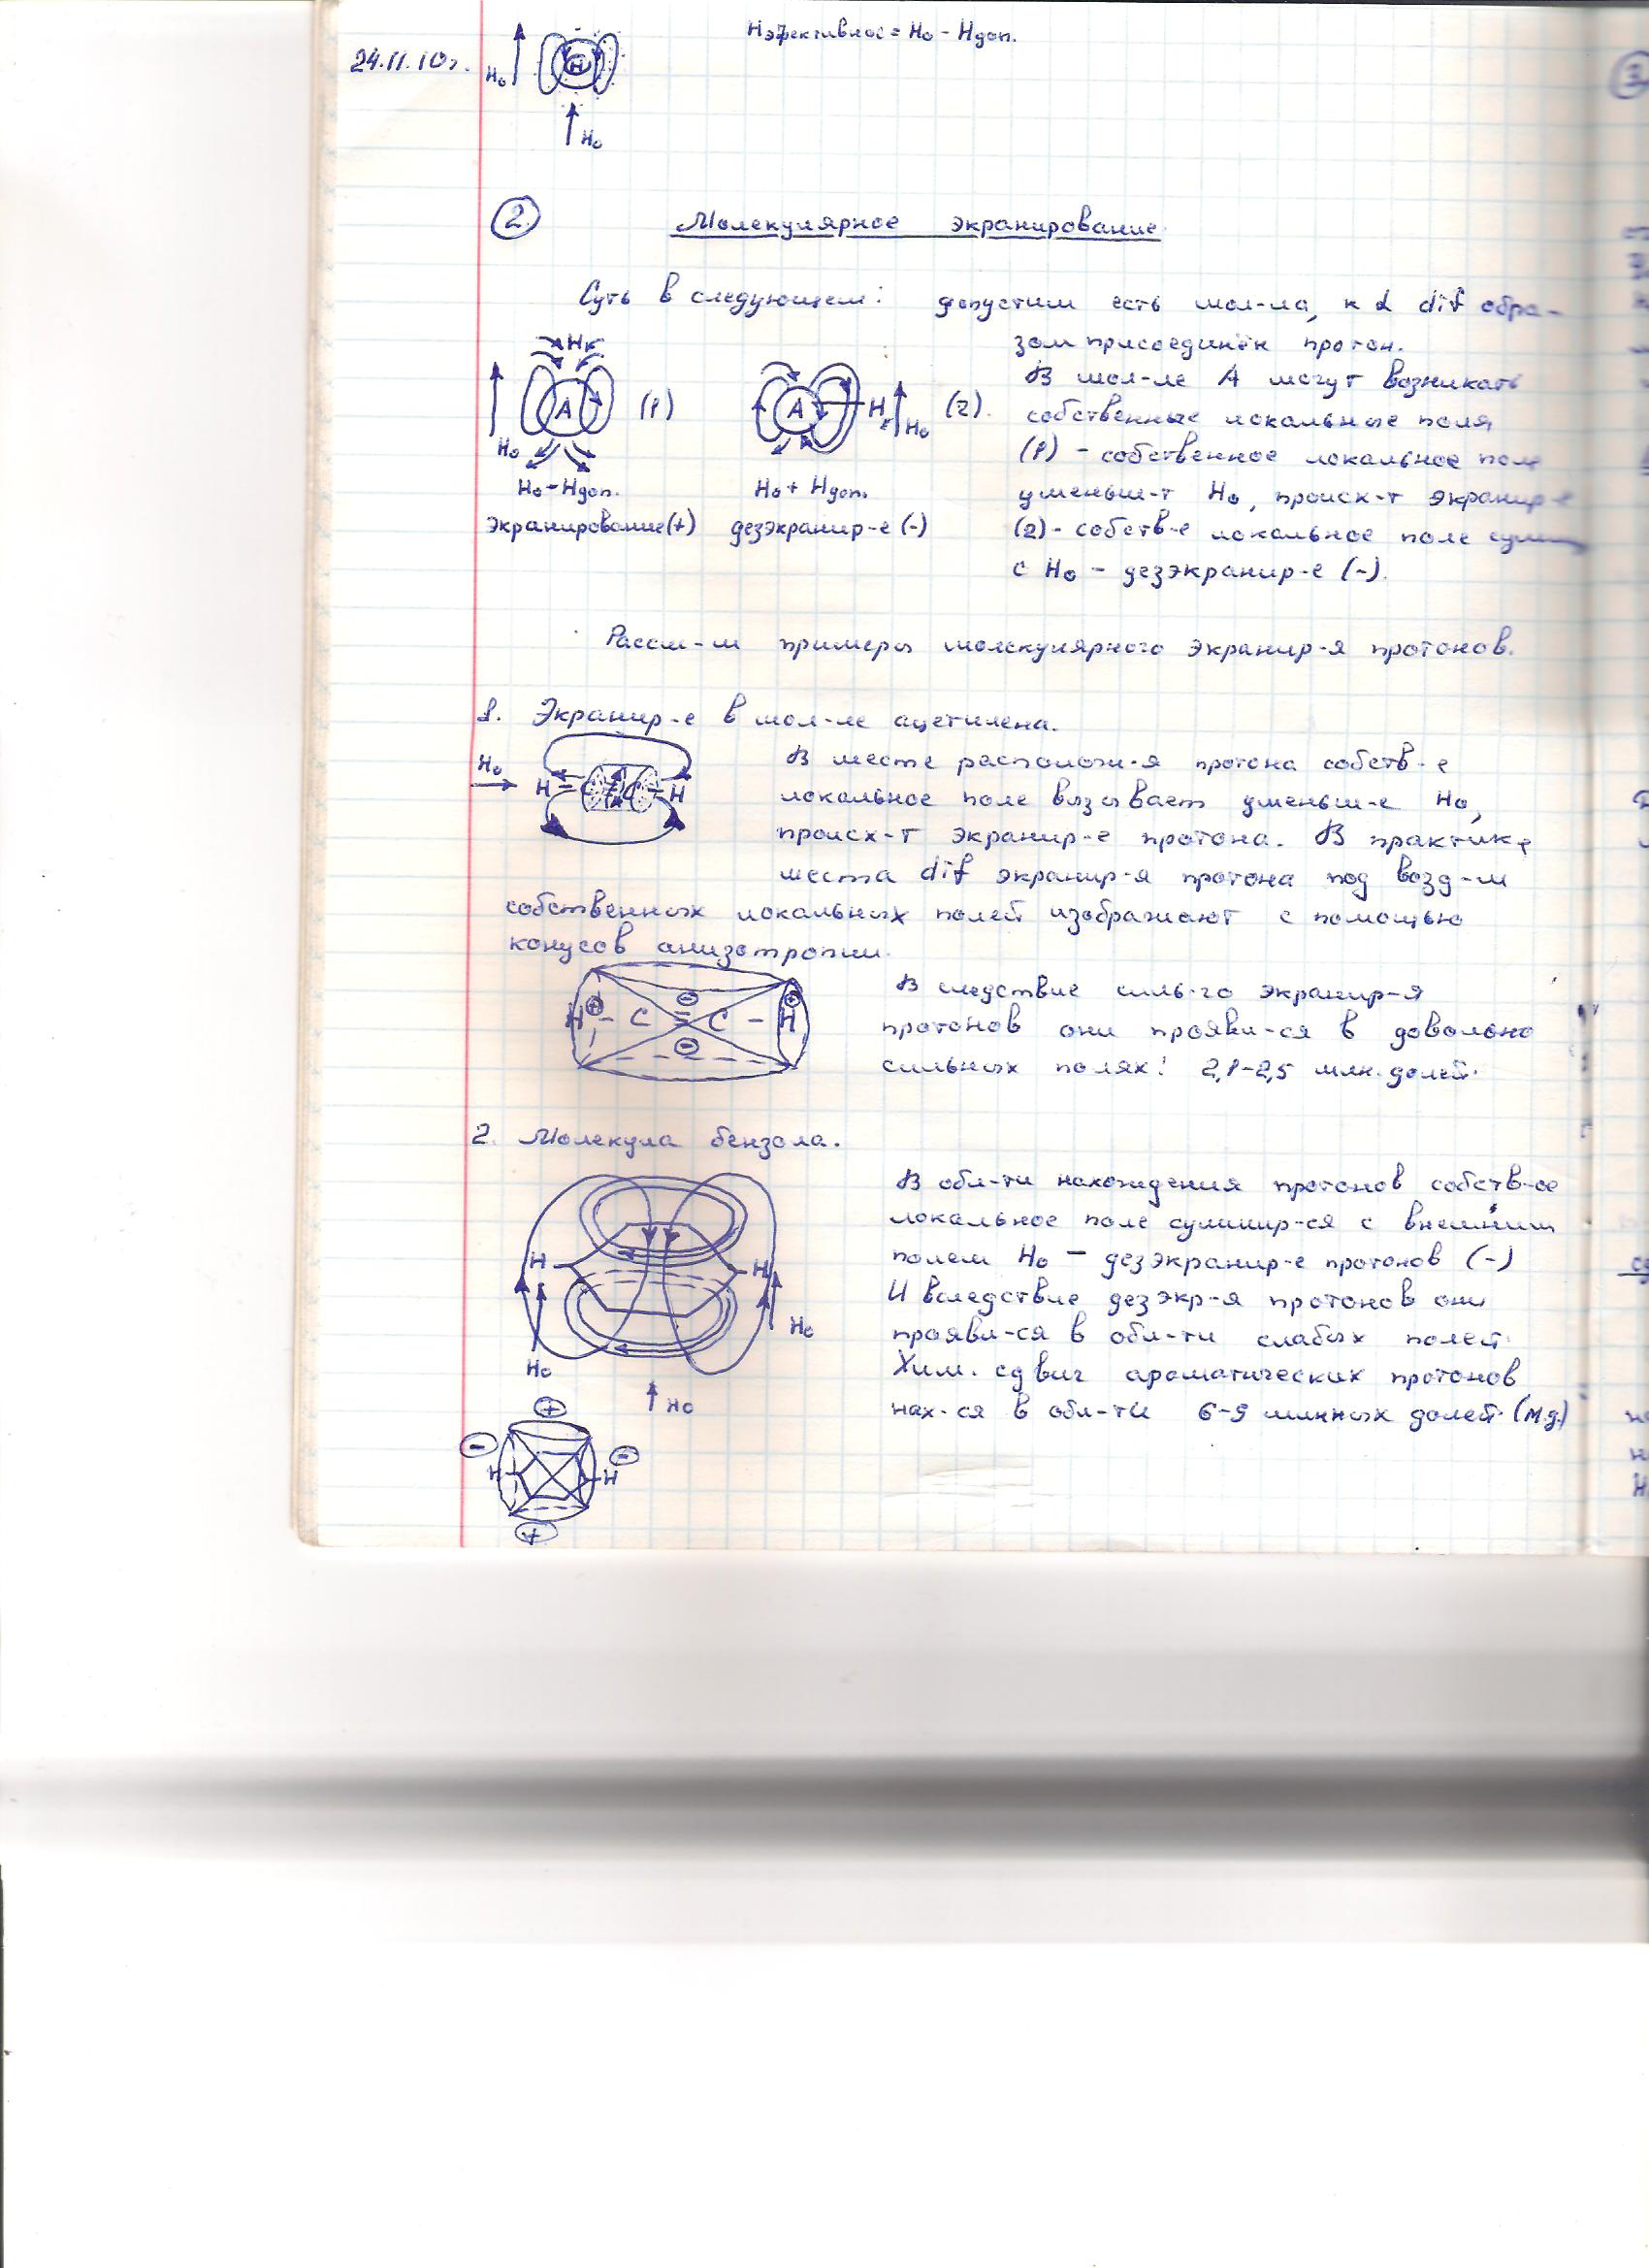 Нэффективное = H₀ - Hдоп.
24.11.10г.
H₀
H
H₀
2. Молекулярное экранирование
Суть в следующем: допустим есть мол-ла, к α dif обра-
зом присоединён протон.
В мол-ле А могут возникать
собственные локальные поля
(1) - собственное локальное поле
уменьш-т H₀, происх-т экранир-е
(2) - собств-е локальное поле
с H₀ - дезэкранир-е (-).
H
A (1)
H₀
H₀ - Hдоп.
экранирование (+)
A H (2).
H₀
H₀ + Hдоп.
дезэкранир-е (-)
Рассм-м примеры молекулярного экранир-я протонов.
1. Экранир-е в мол-ле ацетилена.
H₀
H - C ≡ C - H
В месте располож-я протона собств-е
локальное поле вызывает уменьш-е H₀,
происх-т экранир-е протона. В практике
места dif экранир-я протона под возд-м
собственных локальных полей изображают с помощью
конусов анизотропии.
+ - +
H - C ≡ C - H
-
В следствие силь-го экранир-я
протонов они прояви-ся в довольно
сильных полях: 2,1-2,5 млн. долей.
2. Молекула бензола.
H H
H₀
H₀
H₀
В обл-ти нахождения протонов собств-ое
локальное поле суммир-ся с внешним
полем H₀ - дезэкранир-е протонов (-)
И вследствие дезэкр-я протонов они
прояви-ся в обл-ти слабых полей.
Хим. сдвиг ароматических протонов
нах-ся в обл-ти 6-9 милнных долей (м.д.)
+
- -
H H
+
3